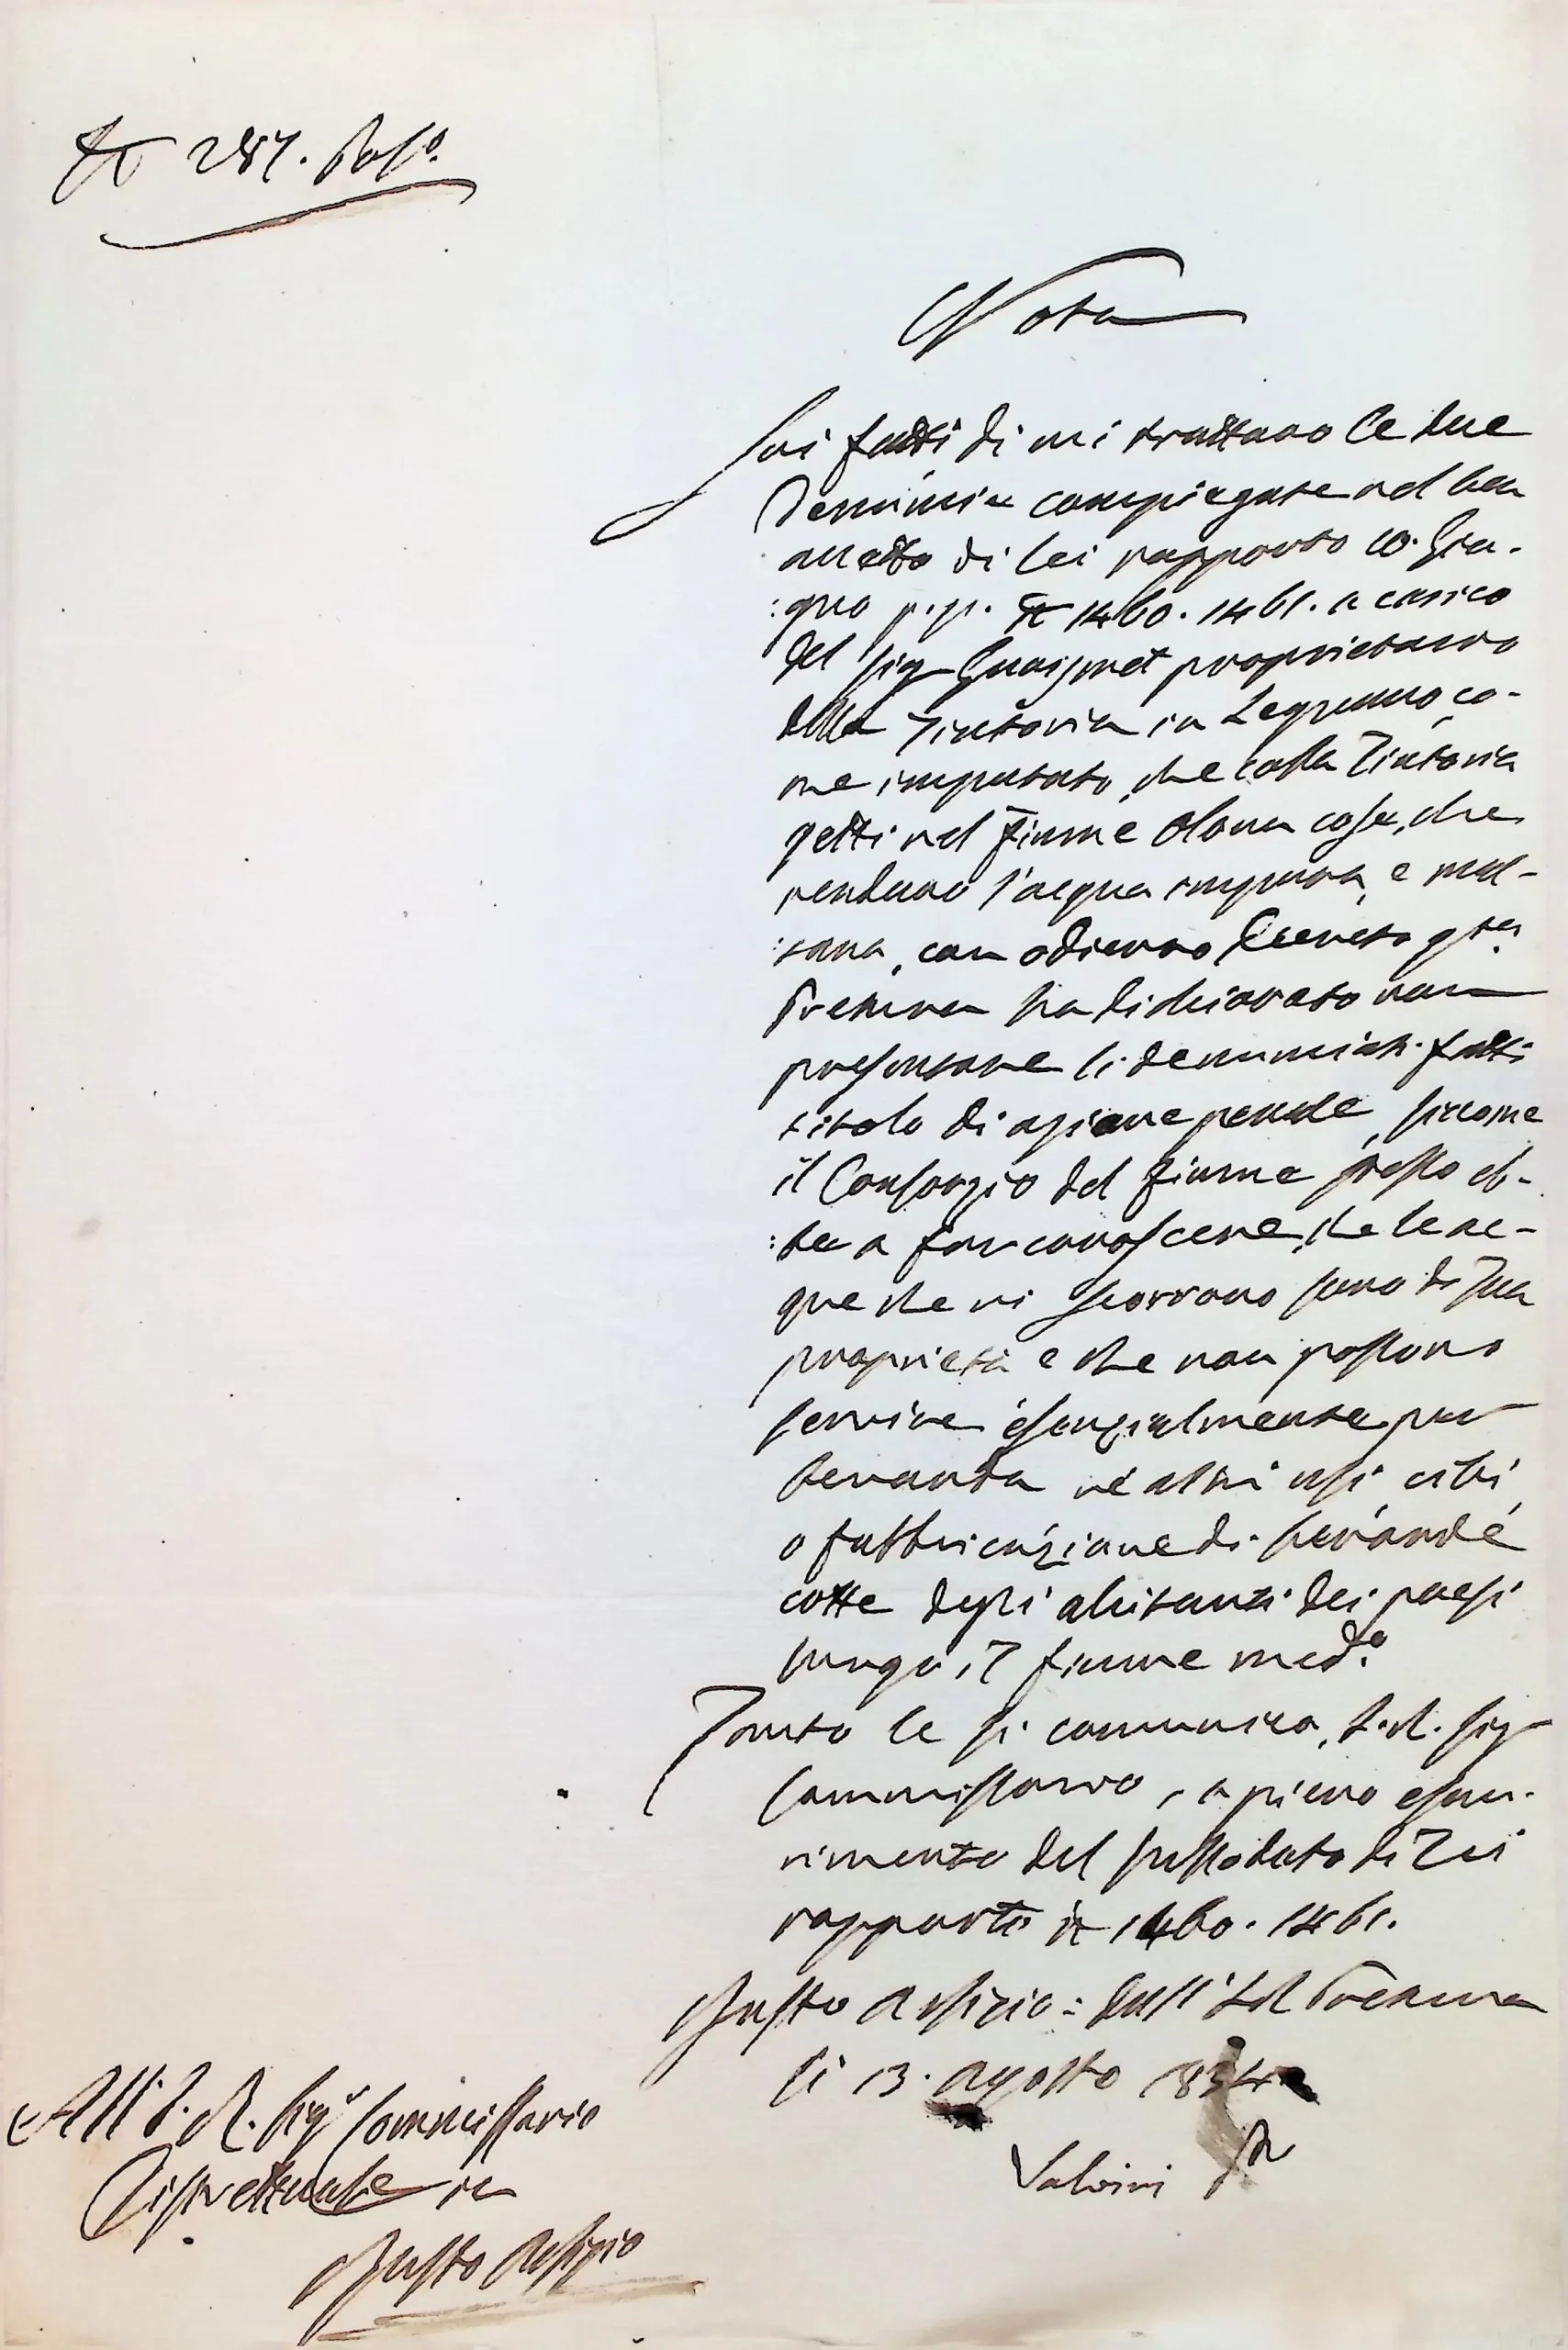 N 287. Pol.º
Nota
Sui fatti di cui trattano le due
Denuncie compiegate nel ben
accetto di lei rapporto 10. Giu-
:gno p.p. N 1460. 1461. a carico
del Sig proprietario
della Tintoria in Legnano, co-
me imputato, che colla Tintoria
getti nel fiume Olona cose, che
rendano l'acqua impura, e mal-
:sana, con odierno Decreto q.ta
Pretura ha dichiarato non
presentare li denunciati fatti
titolo di azione penale, siccome
il Consorzio del fiume stesso eb-
:be a far conoscere, che le ac-
que che vi scorrono sono di sua
proprietà e che non possono
servire essenzialmente per
bevanda nè altri usi, cibi,
o fabbricazione di bevande
cotte degli abitanti dei paesi
lungo il fiume med.º
Tanto le si comunica, I. R. Sig
Commissario, a pieno esau-
rimento del succitato di Lei
rapporto N 1460. 1461.
Busto Arsizio: dall'I R Pretura
li 13. agosto 1834
Salvini
All'I. R. Sig.r Commissario
Distrettuale in
Busto Arsizio